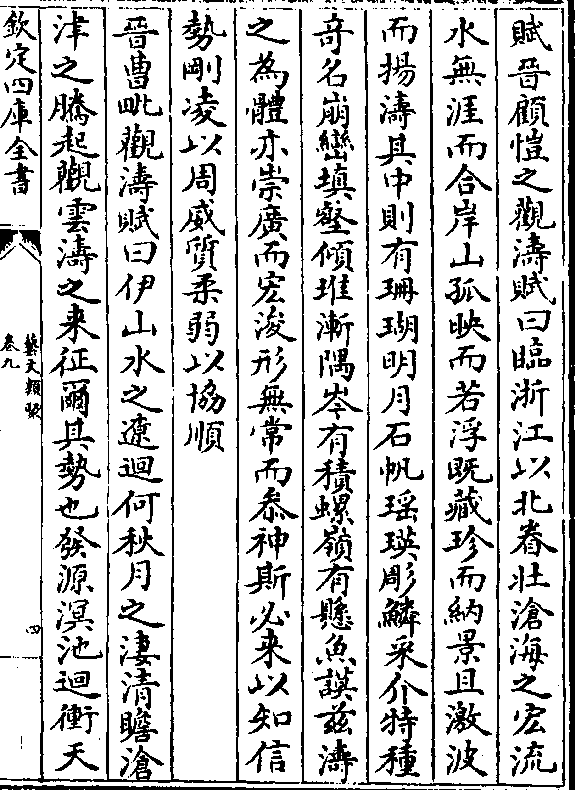 賦晉顧愷之觀濤賦曰臨浙江以北眷壯滄海之宏流
水無涯而合岸山孤映而若浮既藏珍而納景且激波
而揚濤其中則有珊瑚明月石帆瑶瑛彫鱗采介特種
奇名崩巒填壑傾堆漸隅岑有積螺嶺有懸魚謨兹濤
之為體亦崇廣而宏浚形無常而叅神斯必来以知信
勢剛凌以周威質柔弱以協順
晉曹毗觀濤賦曰伊山水之遼迴何秋月之淒清瞻滄
津之騰起觀雲濤之来征爾其勢也發源溟池迴衝天
欽定四庫全書
藝文類聚
卷九
四